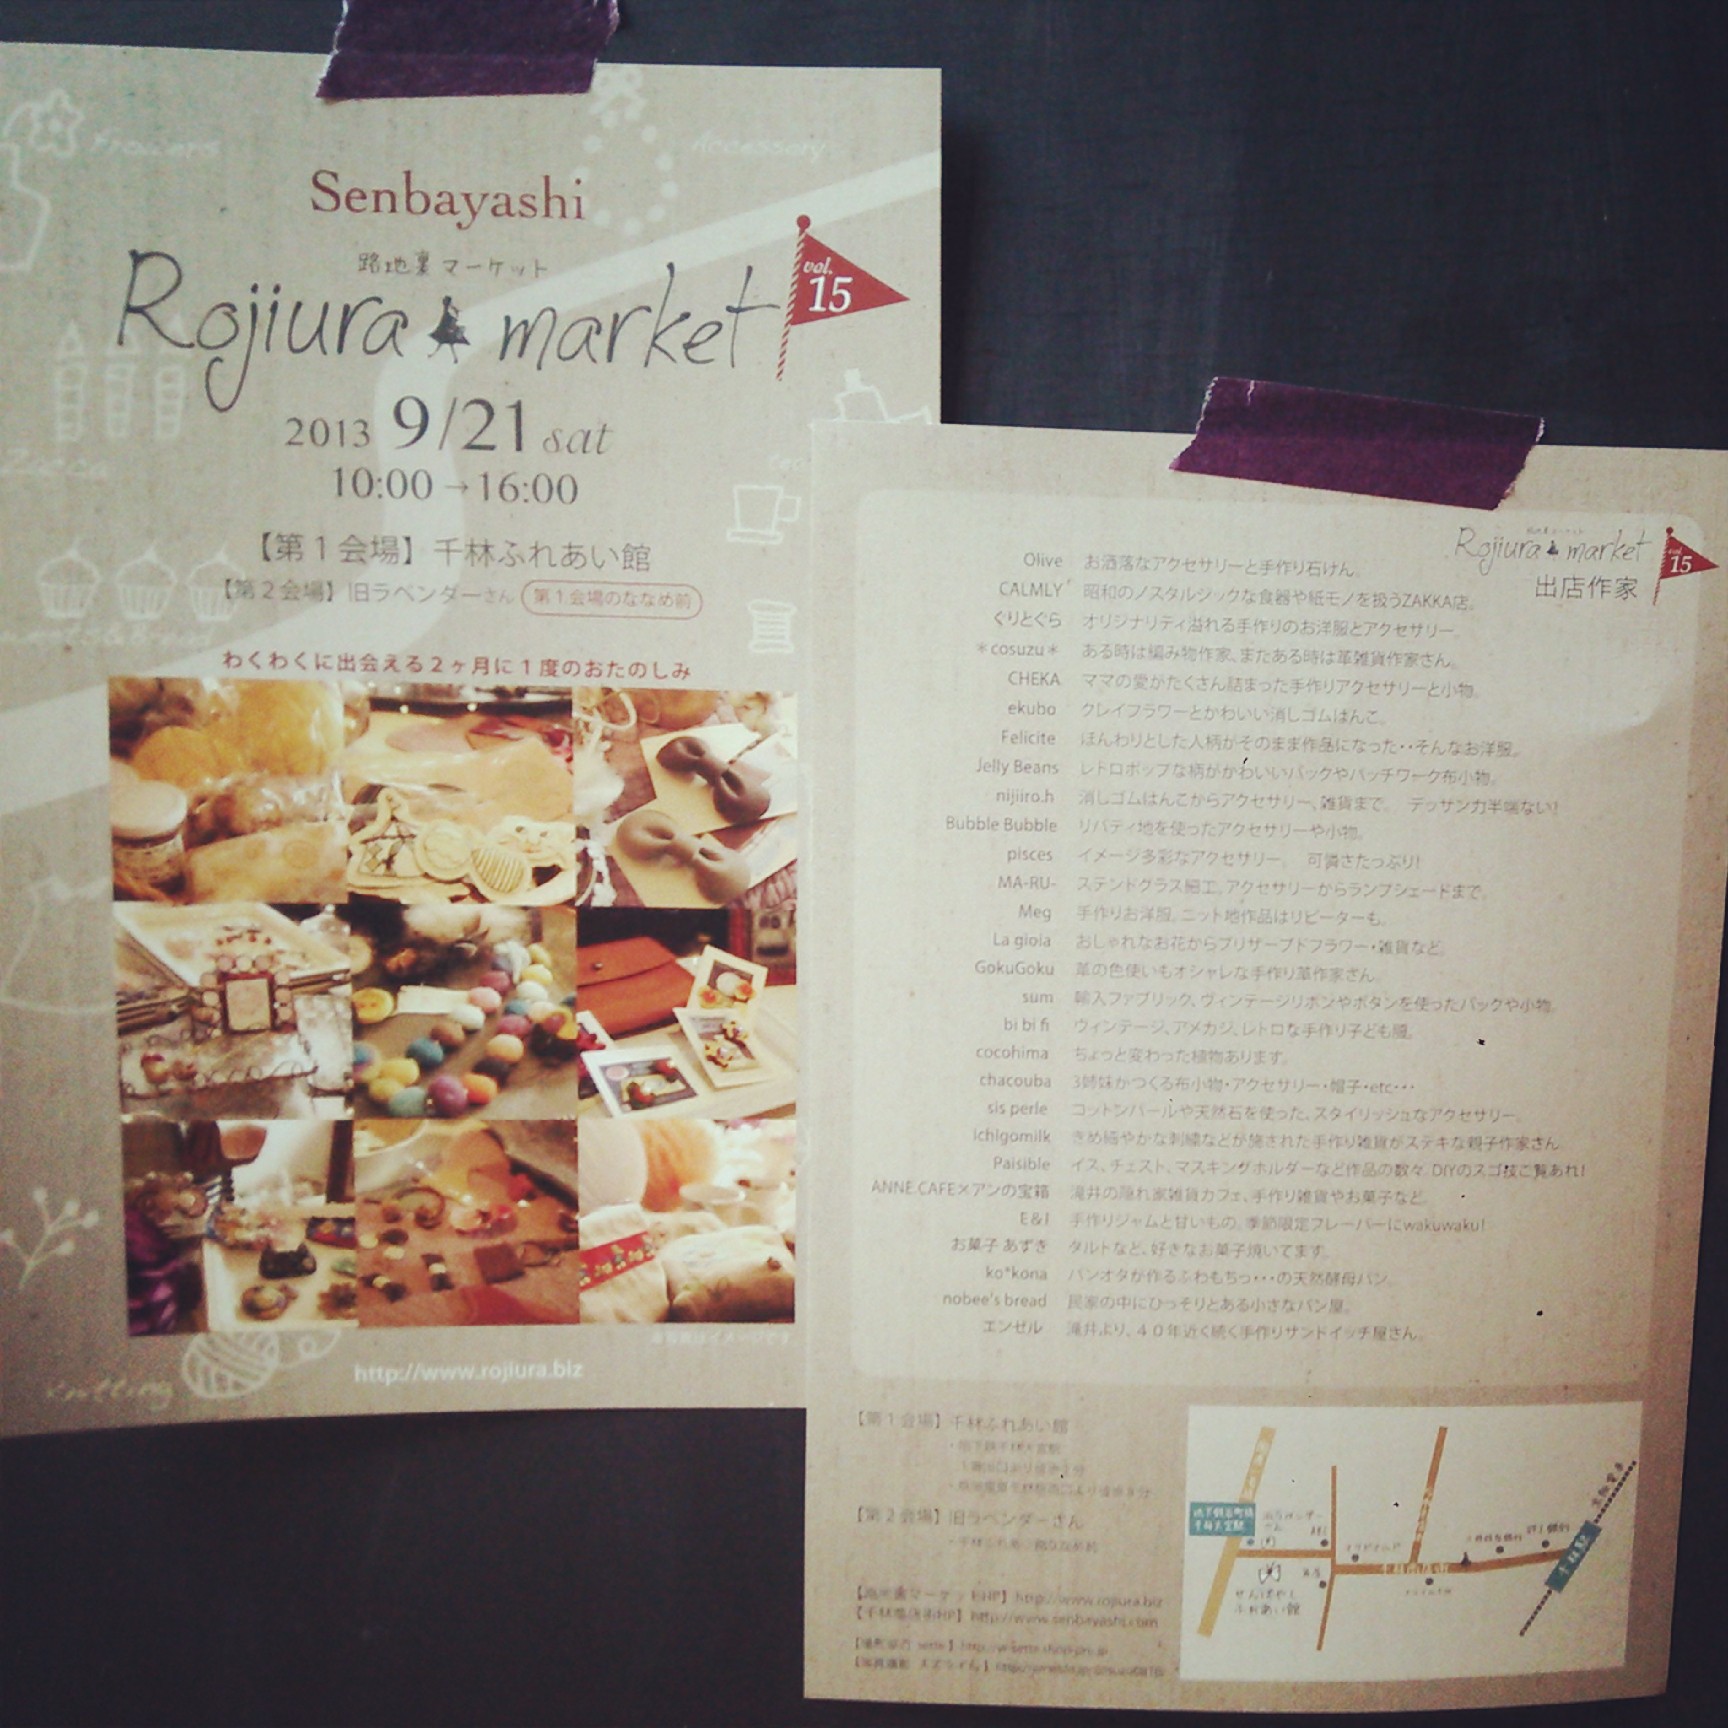 Flowers
Accessory
Senbayashi
路地裏マーケット
Rojiura market
vol.
15
2013 9/21 sat
10:00→16:00
【第1会場】千林ふれあい館
【第2会場】旧ラベンダーさん 第1会場のななめ前
わくわくに出会える2ヶ月に1度のおたのしみ
Zacca
※写真はイメージです
http://www.rojiura.biz
knitting
路地裏マーケット
Rojiura market
vol.
15
出店作家
Olive お洒落なアクセサリーと手作り石けん。
CALMLY' 昭和のノスタルジックな食器や紙モノを扱うZAKKA店。
ぐりとぐら オリジナリティ溢れる手作りのお洋服とアクセサリー。
＊cosuzu＊ ある時は編み物作家、またある時は革雑貨作家さん。
CHEKA ママの愛がたくさん詰まった手作りアクセサリーと小物。
ekubo クレイフラワーとかわいい消しゴムはんこ。
Felicite ほんわりとした人柄がそのまま作品になった・・そんなお洋服。
Jelly Beans レトロポップな柄がかわいいバックやパッチワーク布小物。
nijiiro.h 消しゴムはんこからアクセサリー、雑貨まで。 デッサン力半端ない!
Bubble Bubble リバティ地を使ったアクセサリーや小物。
pisces イメージ多彩なアクセサリー。 可憐さたっぷり!
MA-RU- ステンドグラス細工。アクセサリーからランプシェードまで。
Meg 手作りお洋服。ニット地作品はリピーターも。
La gioia おしゃれなお花からプリザーブドフラワー・雑貨など。
GokuGoku 革の色使いもオシャレな手作り革作家さん。
sum 輸入ファブリック、ヴィンテージリボンやボタンを使ったバックや小物。
bi bi fi ヴィンテージ、アメカジ、レトロな手作り子ども服。
cocohima ちょっと変わった植物あります。
chacouba 3姉妹がつくる布小物・アクセサリー・帽子・etc・・・
sis perle コットンパールや天然石を使った、スタイリッシュなアクセサリー。
ichigomilk きめ細やかな刺繍などが施された手作り雑貨がステキな親子作家さん
Paisible イス、チェスト、マスキングホルダーなど作品の数々 DIYのスゴ技ご覧あれ!
ANNE CAFE×アンの宝箱 滝井の隠れ家雑貨カフェ、手作り雑貨やお菓子など。
E&I 手作りジャムと甘いもの。季節限定フレーバーにwakuwaku!
お菓子 あずき タルトなど、好きなお菓子焼いてます。
ko*kona パンオタが作るふわもちっ・・・の天然酵母パン。
nobee's bread 民家の中にひっそりとある小さなパン屋。
エンゼル 滝井より、40年近く続く手作りサンドイッチ屋さん。
【第1会場】千林ふれあい館
【第2会場】旧ラベンダーさん
【路地裏マーケットHP】http://www.rojiura.biz
【千林商店街HP】http://www.senbayashi.com
せんばやし
ふれあい館
千林駅